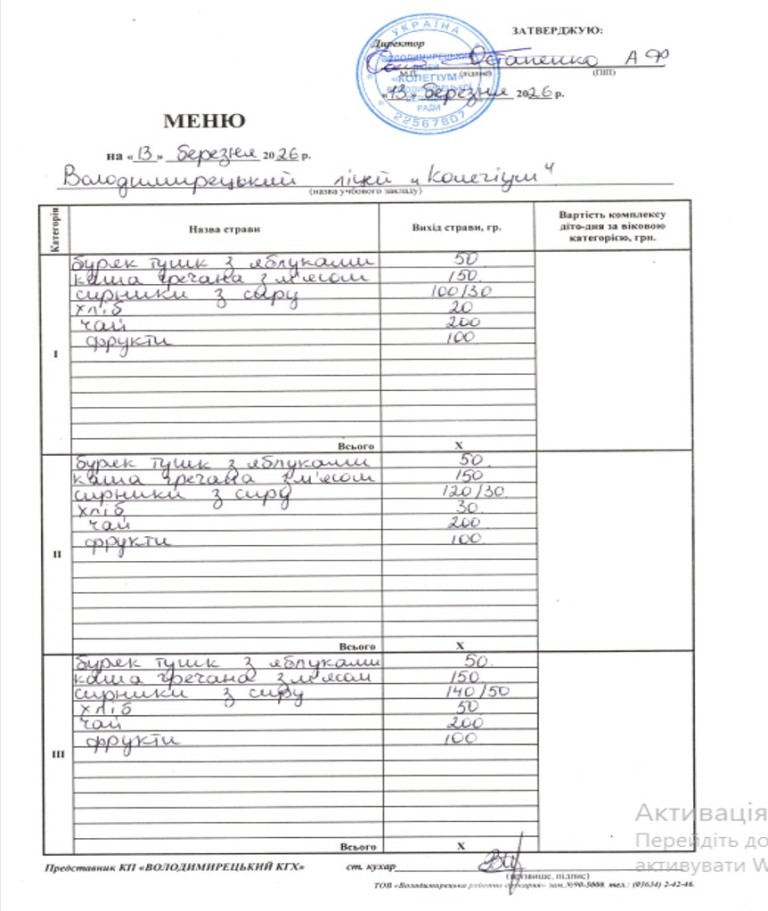 ЗАТВЕРДЖУЮ:
Директор
Остапенко А Ф
М.П. (підпис) (ПІП)
«13» березня 2026 р.
УКРАЇНА
ВОЛОДИМИРЕЦЬКИЙ
«КОЛЕГІУМ»
РАДИ
22567807
МЕНЮ
на «13» березня 2026 р.
Володимирецький ліцей „Колегіум"
(назва учбового закладу)
Категорія
Назва страви
Вихід страви, гр.
Вартість комплексу діто-дня за віковою категорією, грн.
I
буряк тушк з яблуками 50
каша гречана з м'ясом 150
сирники з сиру 100/30
хліб 20
чай 200
фрукти 100
Всього X
II
буряк тушк з яблуками 50
каша гречана з м'ясом 150
сирники з сиру 120/30
хліб 30
чай 200
фрукти 100
Всього X
III
буряк тушк з яблуками 50
каша гречана з м'ясом 150
сирники з сиру 140/50
хліб 50
чай 200
фрукти 100
Всього X
Представник КП «ВОЛОДИМИРЕЦЬКИЙ КГХ» ст. кухар
(прізвище, підпис)
ТОВ «Володимирецька друкарня» зам.№90-3000. тел.: (03634) 2-42-46.
Активація
Перейдіть до
активувати W